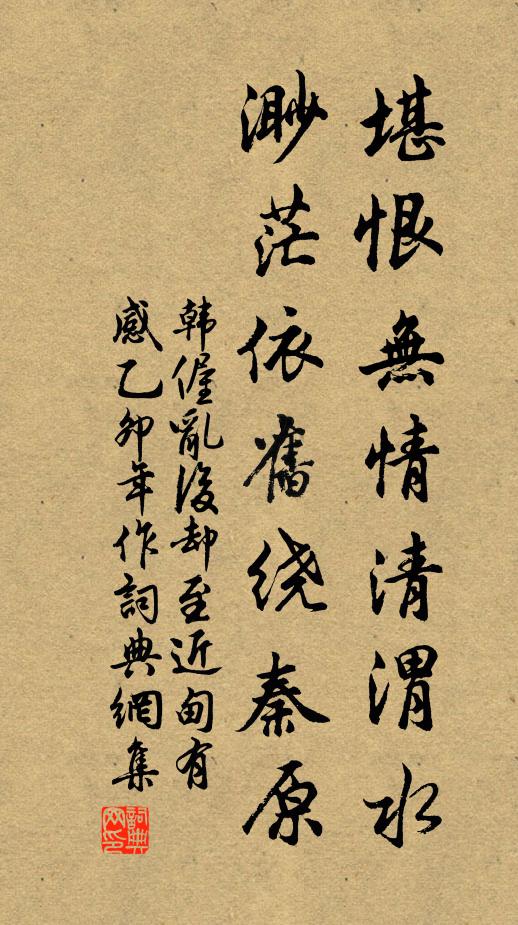 堪恨無情清渭水
渺茫依舊绕秦原
韩偓亂後却至近甸有
感乙卯年作詞典網集
詞典
网印